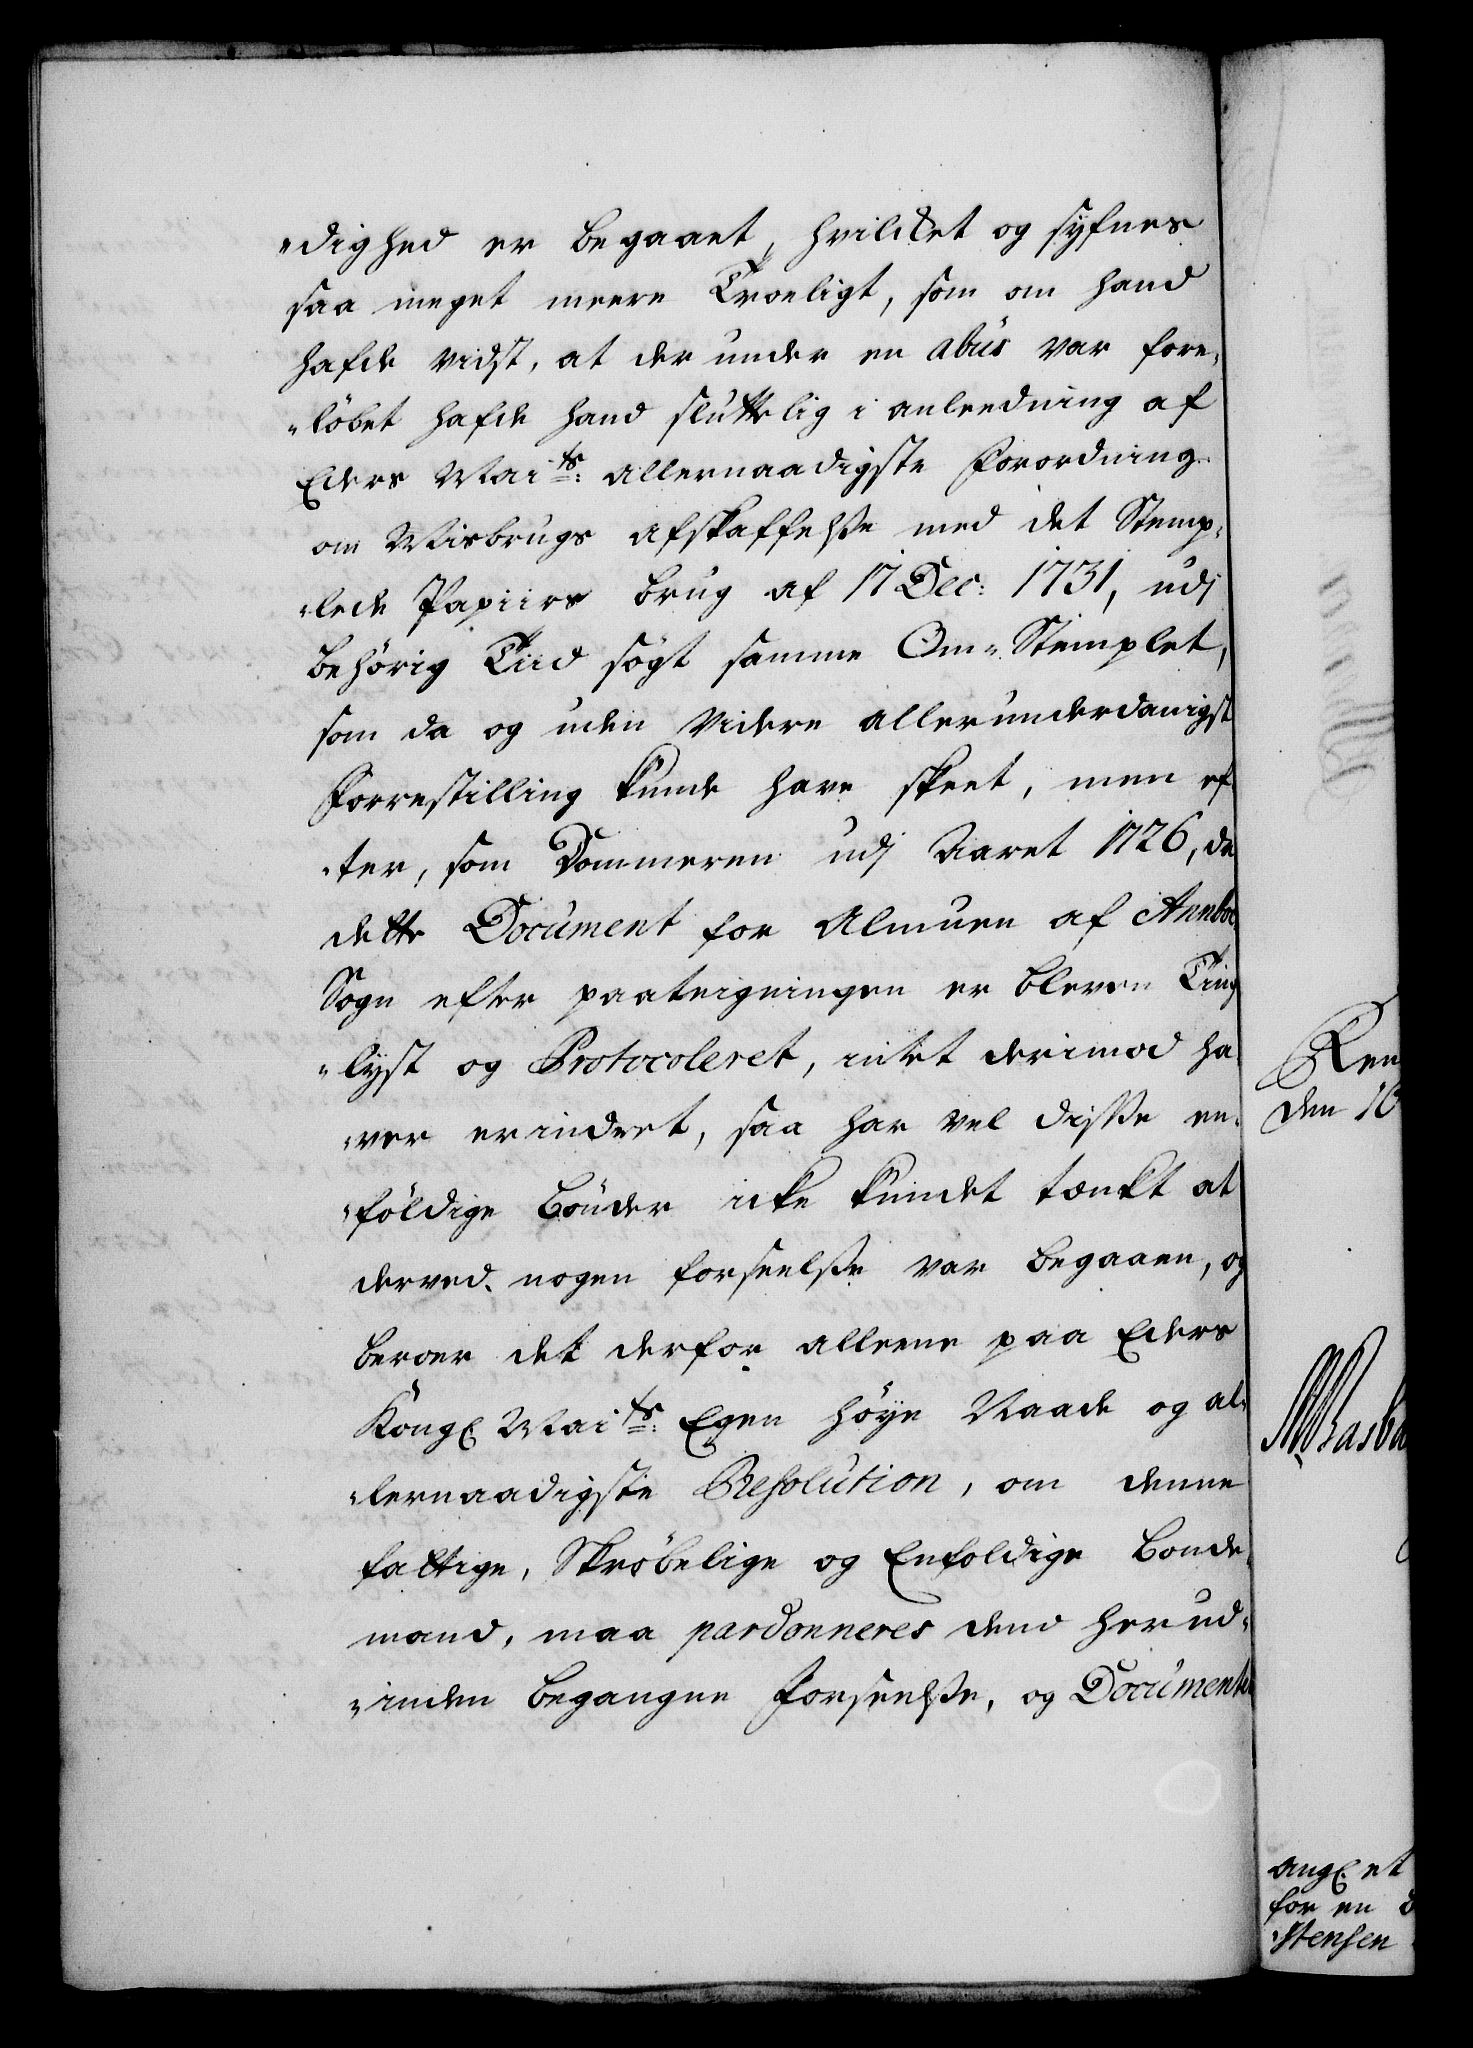 "dighed er begaaet, hvilcket og syfnes
saa meget meere Troeligt, som om hand
hafde vidst, at der under en abus var fore-
"löbet hafde hand sluttelig i anleedning af
Eders Mai:ts allernaadigste Forordning
om Misbrugs afskaffelsse med det Stemp-
"lede Papiirs brug af 17 Dec: 1731, udj
behörig Tiid sögt samme Om-Stemplet,
som da og uden videre allerunderdanigst
Forrestilling kunde have skeet, men ef
"ter, som Dommeren udj Aaret 1726, da
dette Document for Almuen af
Sogn efter paateigningen er bleven Ting
"lyst og Protocoleret, intet derimod ha-
"ver erindret, saa har vel disse een-
"földige Bönder icke kundet tænkt at
derved nogen forseelsse var begaaen, og
beroer det derfor alleene paa Eders
Kongl Mai:ts Egen höye Naade og al-
"lernaadigste Resolution, om denne
fattige, Skröbelige og Enfoldige Bonde-
mand, maa pardonneres dend herud-
"inden begangne Forseelsse, og Documentet
Ren
den 16
angl et
for en
Stensen